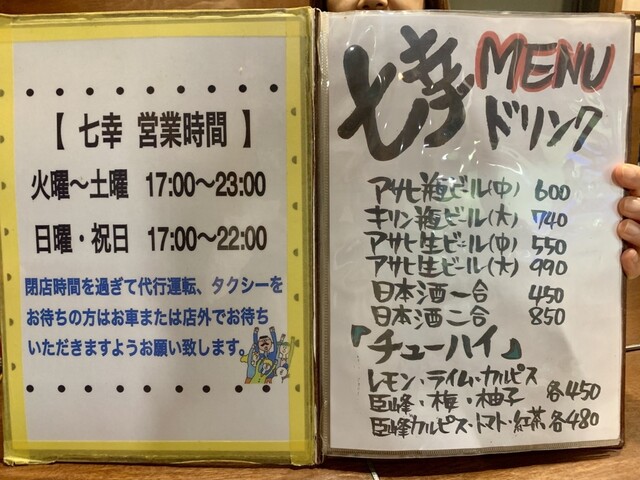 【 七幸 営業時間 】
火曜～土曜 17:00～23:00
日曜・祝日 17:00～22:00
閉店時間を過ぎて代行運転、タクシーを
お待ちの方はお車または店外でお待ち
いただきますようお願い致します。
七幸 MENU
ドリンク
アサヒ瓶ビール(中) 600
キリン瓶ビール(大) 740
アサヒ生ビール(中) 550
アサヒ生ビール(大) 990
日本酒一合 450
日本酒二合 850
「チューハイ」
レモン・ライム・カルピス
巨峰・梅・柚子 各450
巨峰カルピス・トマト・紅茶 各480